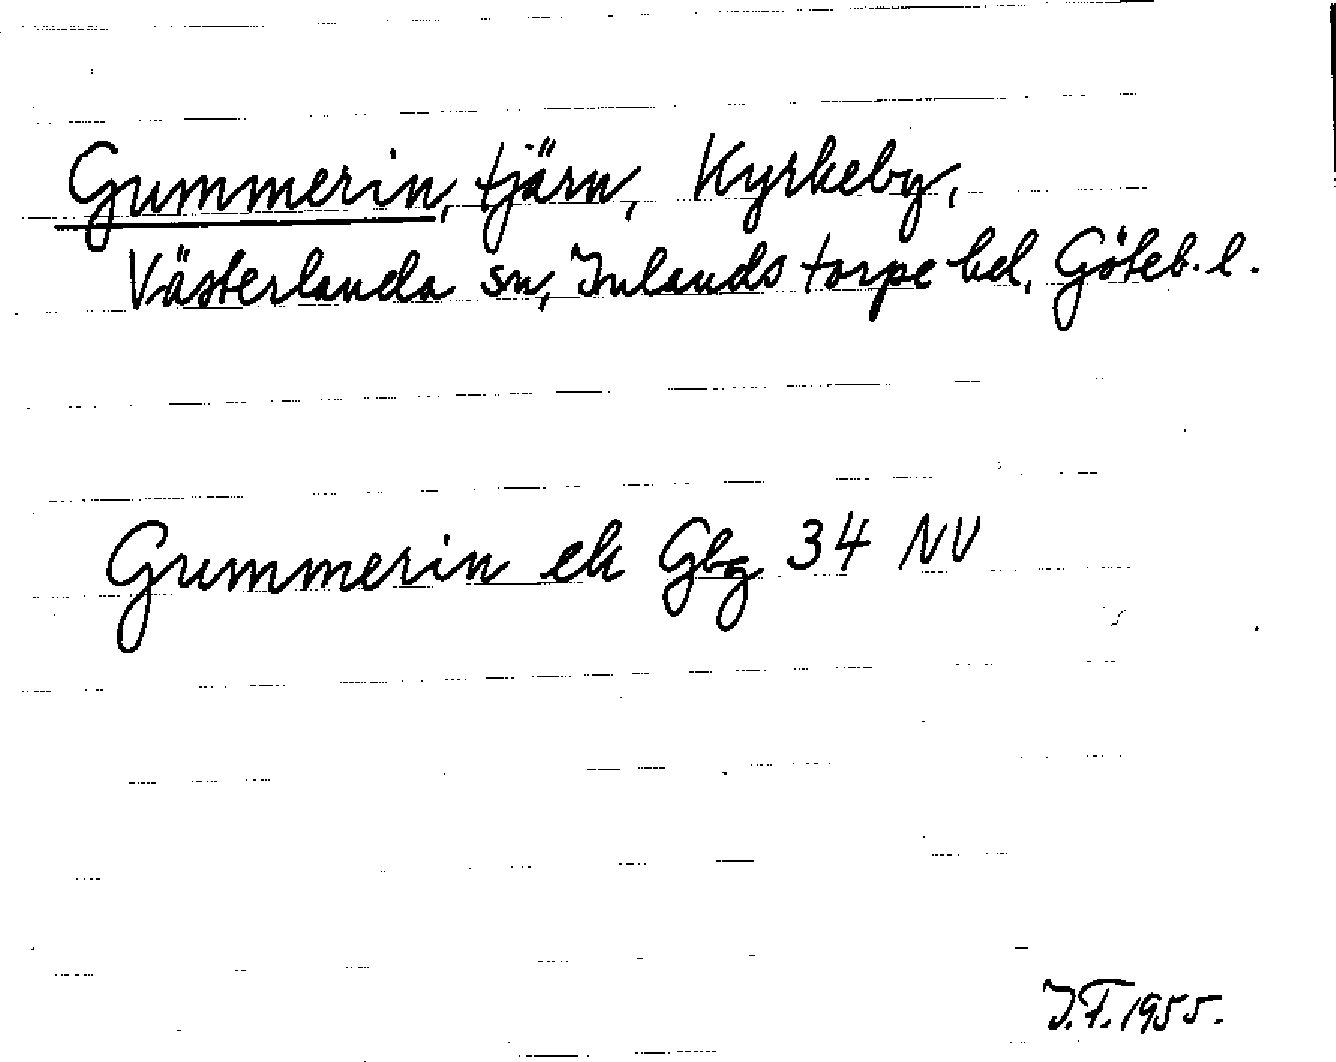 Gummerin, tjärn, Kyrkeby,
Västerlanda sn, Inlands torpe hd, Göteb. l.
Gummerin ek Gbg 34 NV
I.F. 1955.